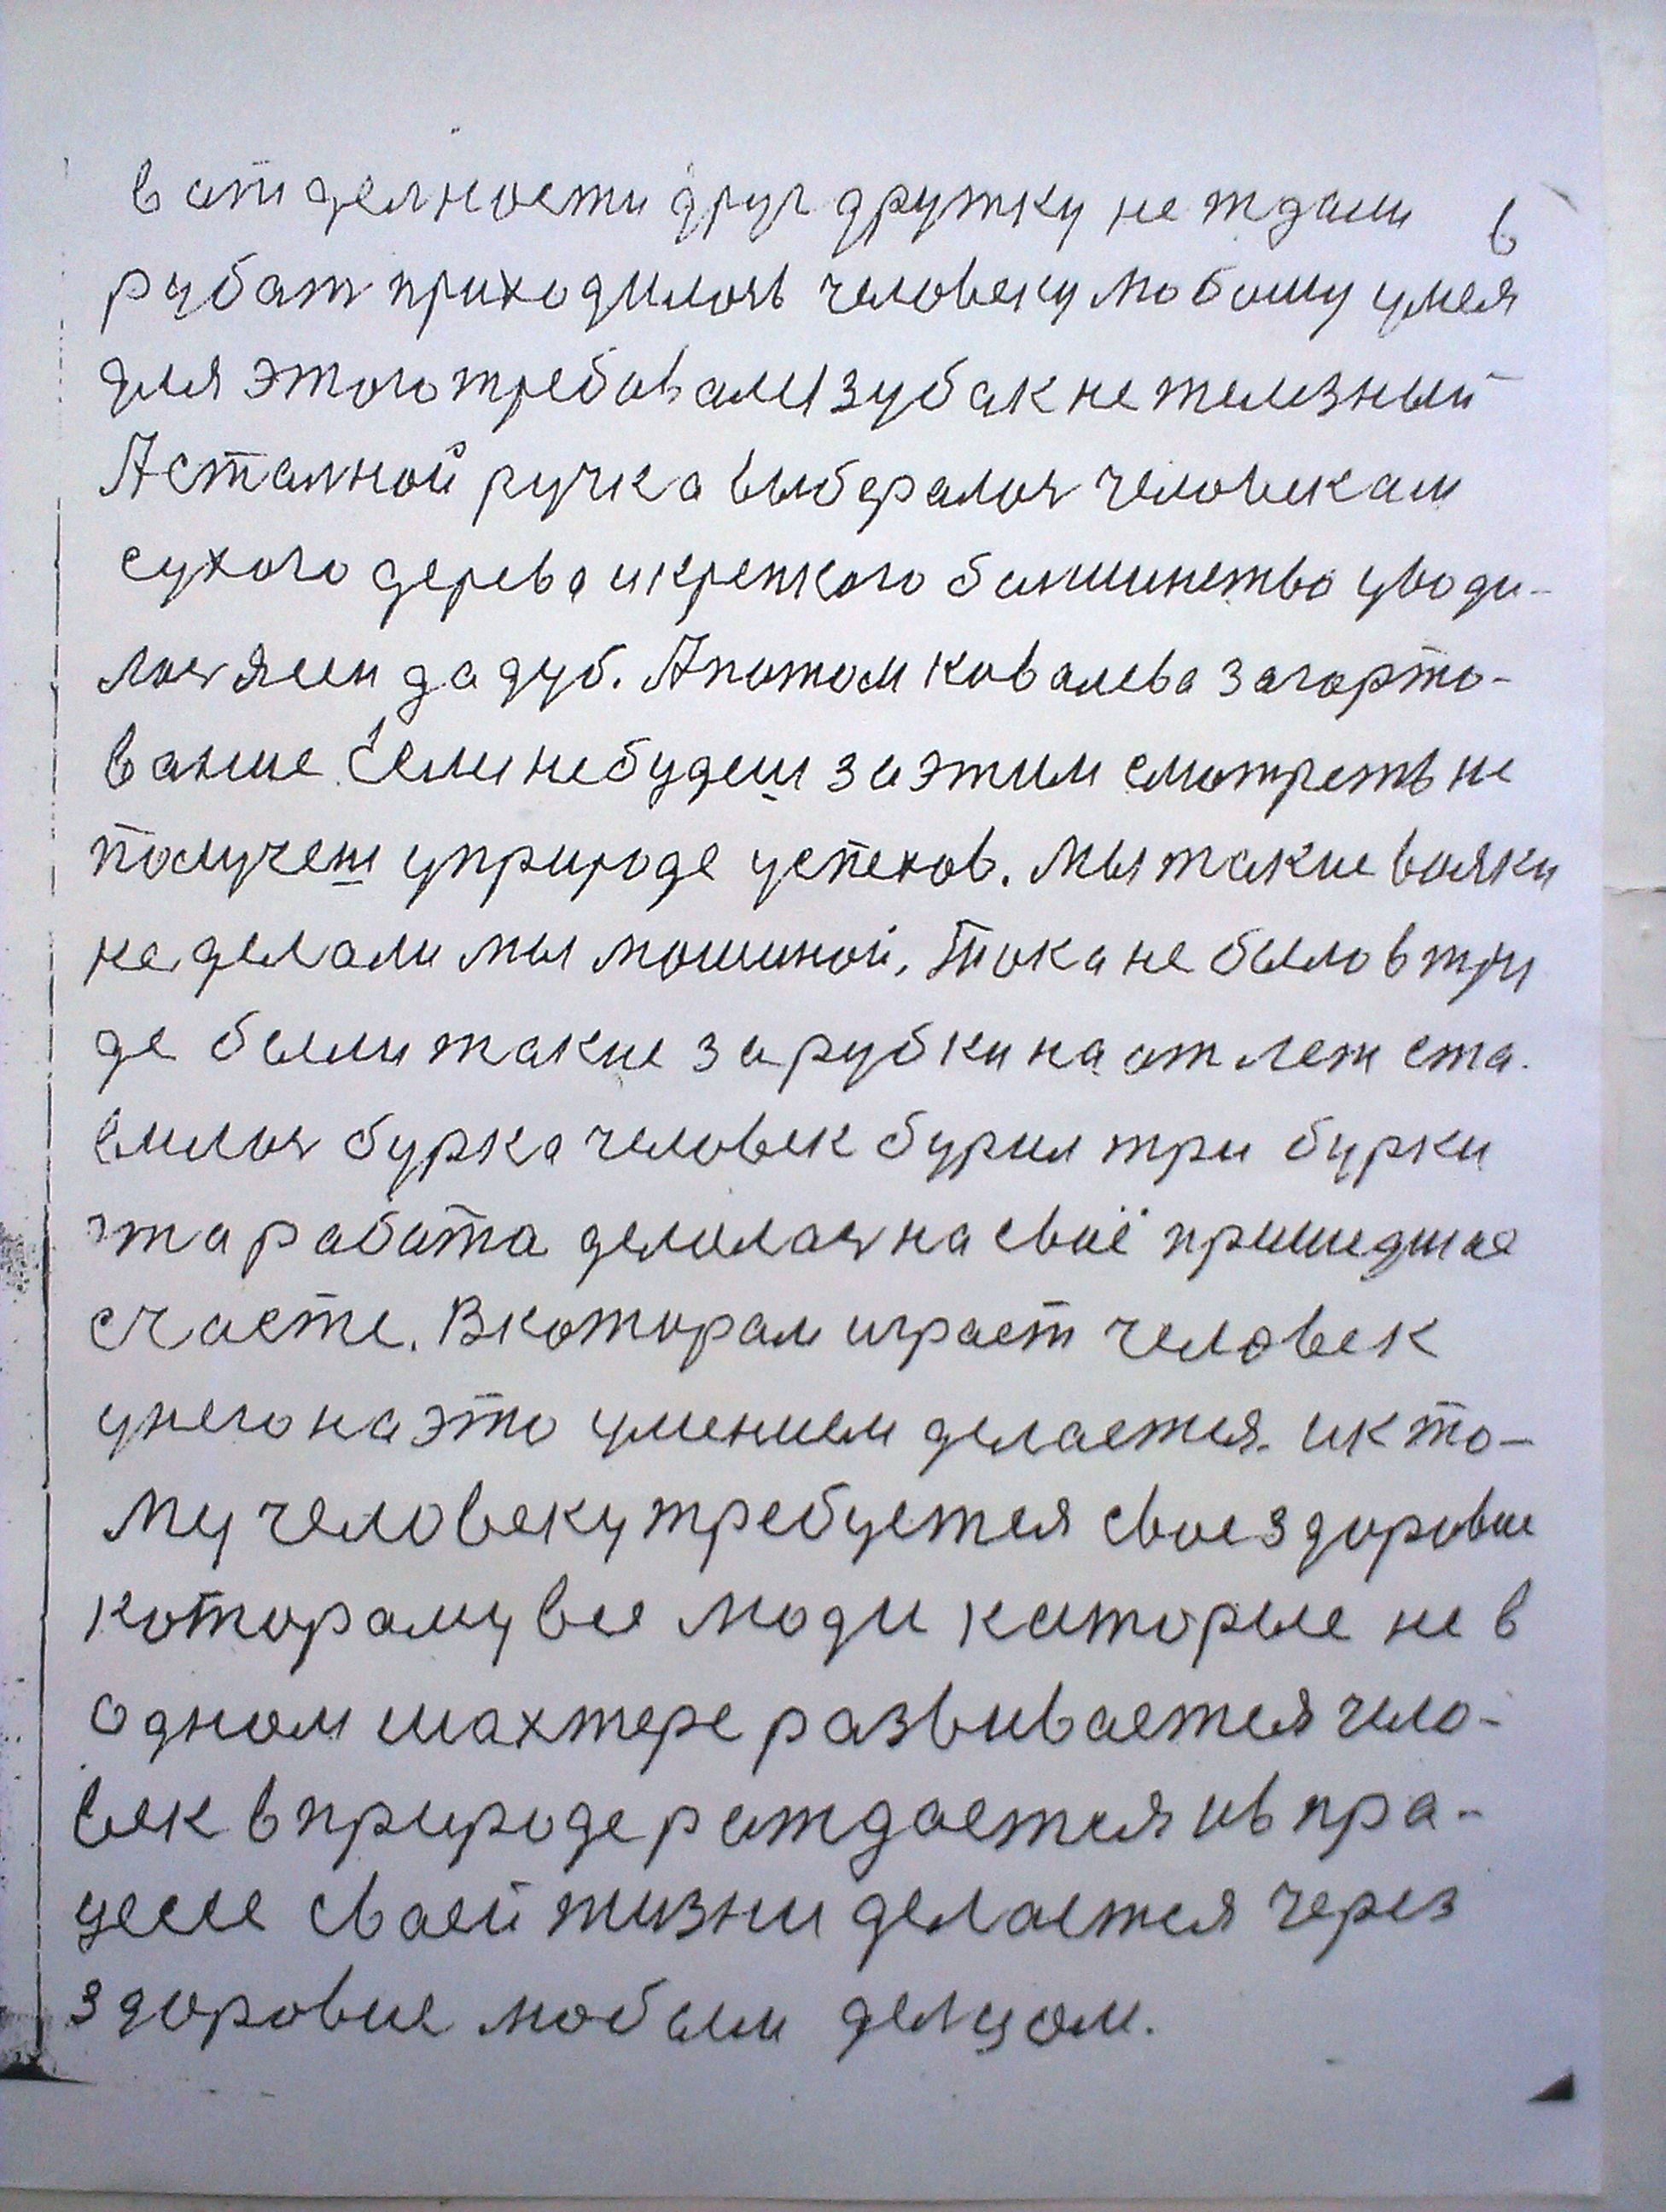 в отделности друг дружку не ждали в
рубат приходилось человеку любому умея
для этого требовали зубак не железный
А сталной ручка выбералось человекам
сухого дерева и крепкого болшинство уводи-
лось ясен да дуб. А потом ковалева загарто-
вание. Если небудеш за этим смотреть не
получеш уприроде успехов. Мы такие вояки
не делали мы машиной, Тока не было в тру
де были такие зарубки на отлет ста.
вилось бурка человек бурил три бурки
эта работа делолось на своё пришедшое
счасте. В которам играет человек
унего на это умением делается. и к то-
му человеку требуется свое здоровие
которому все люди каторые не в
одном шахтере развивается чело-
век в природе рождается и в пра-
цессе сваей жизни делается через
здоровие любым делцом.